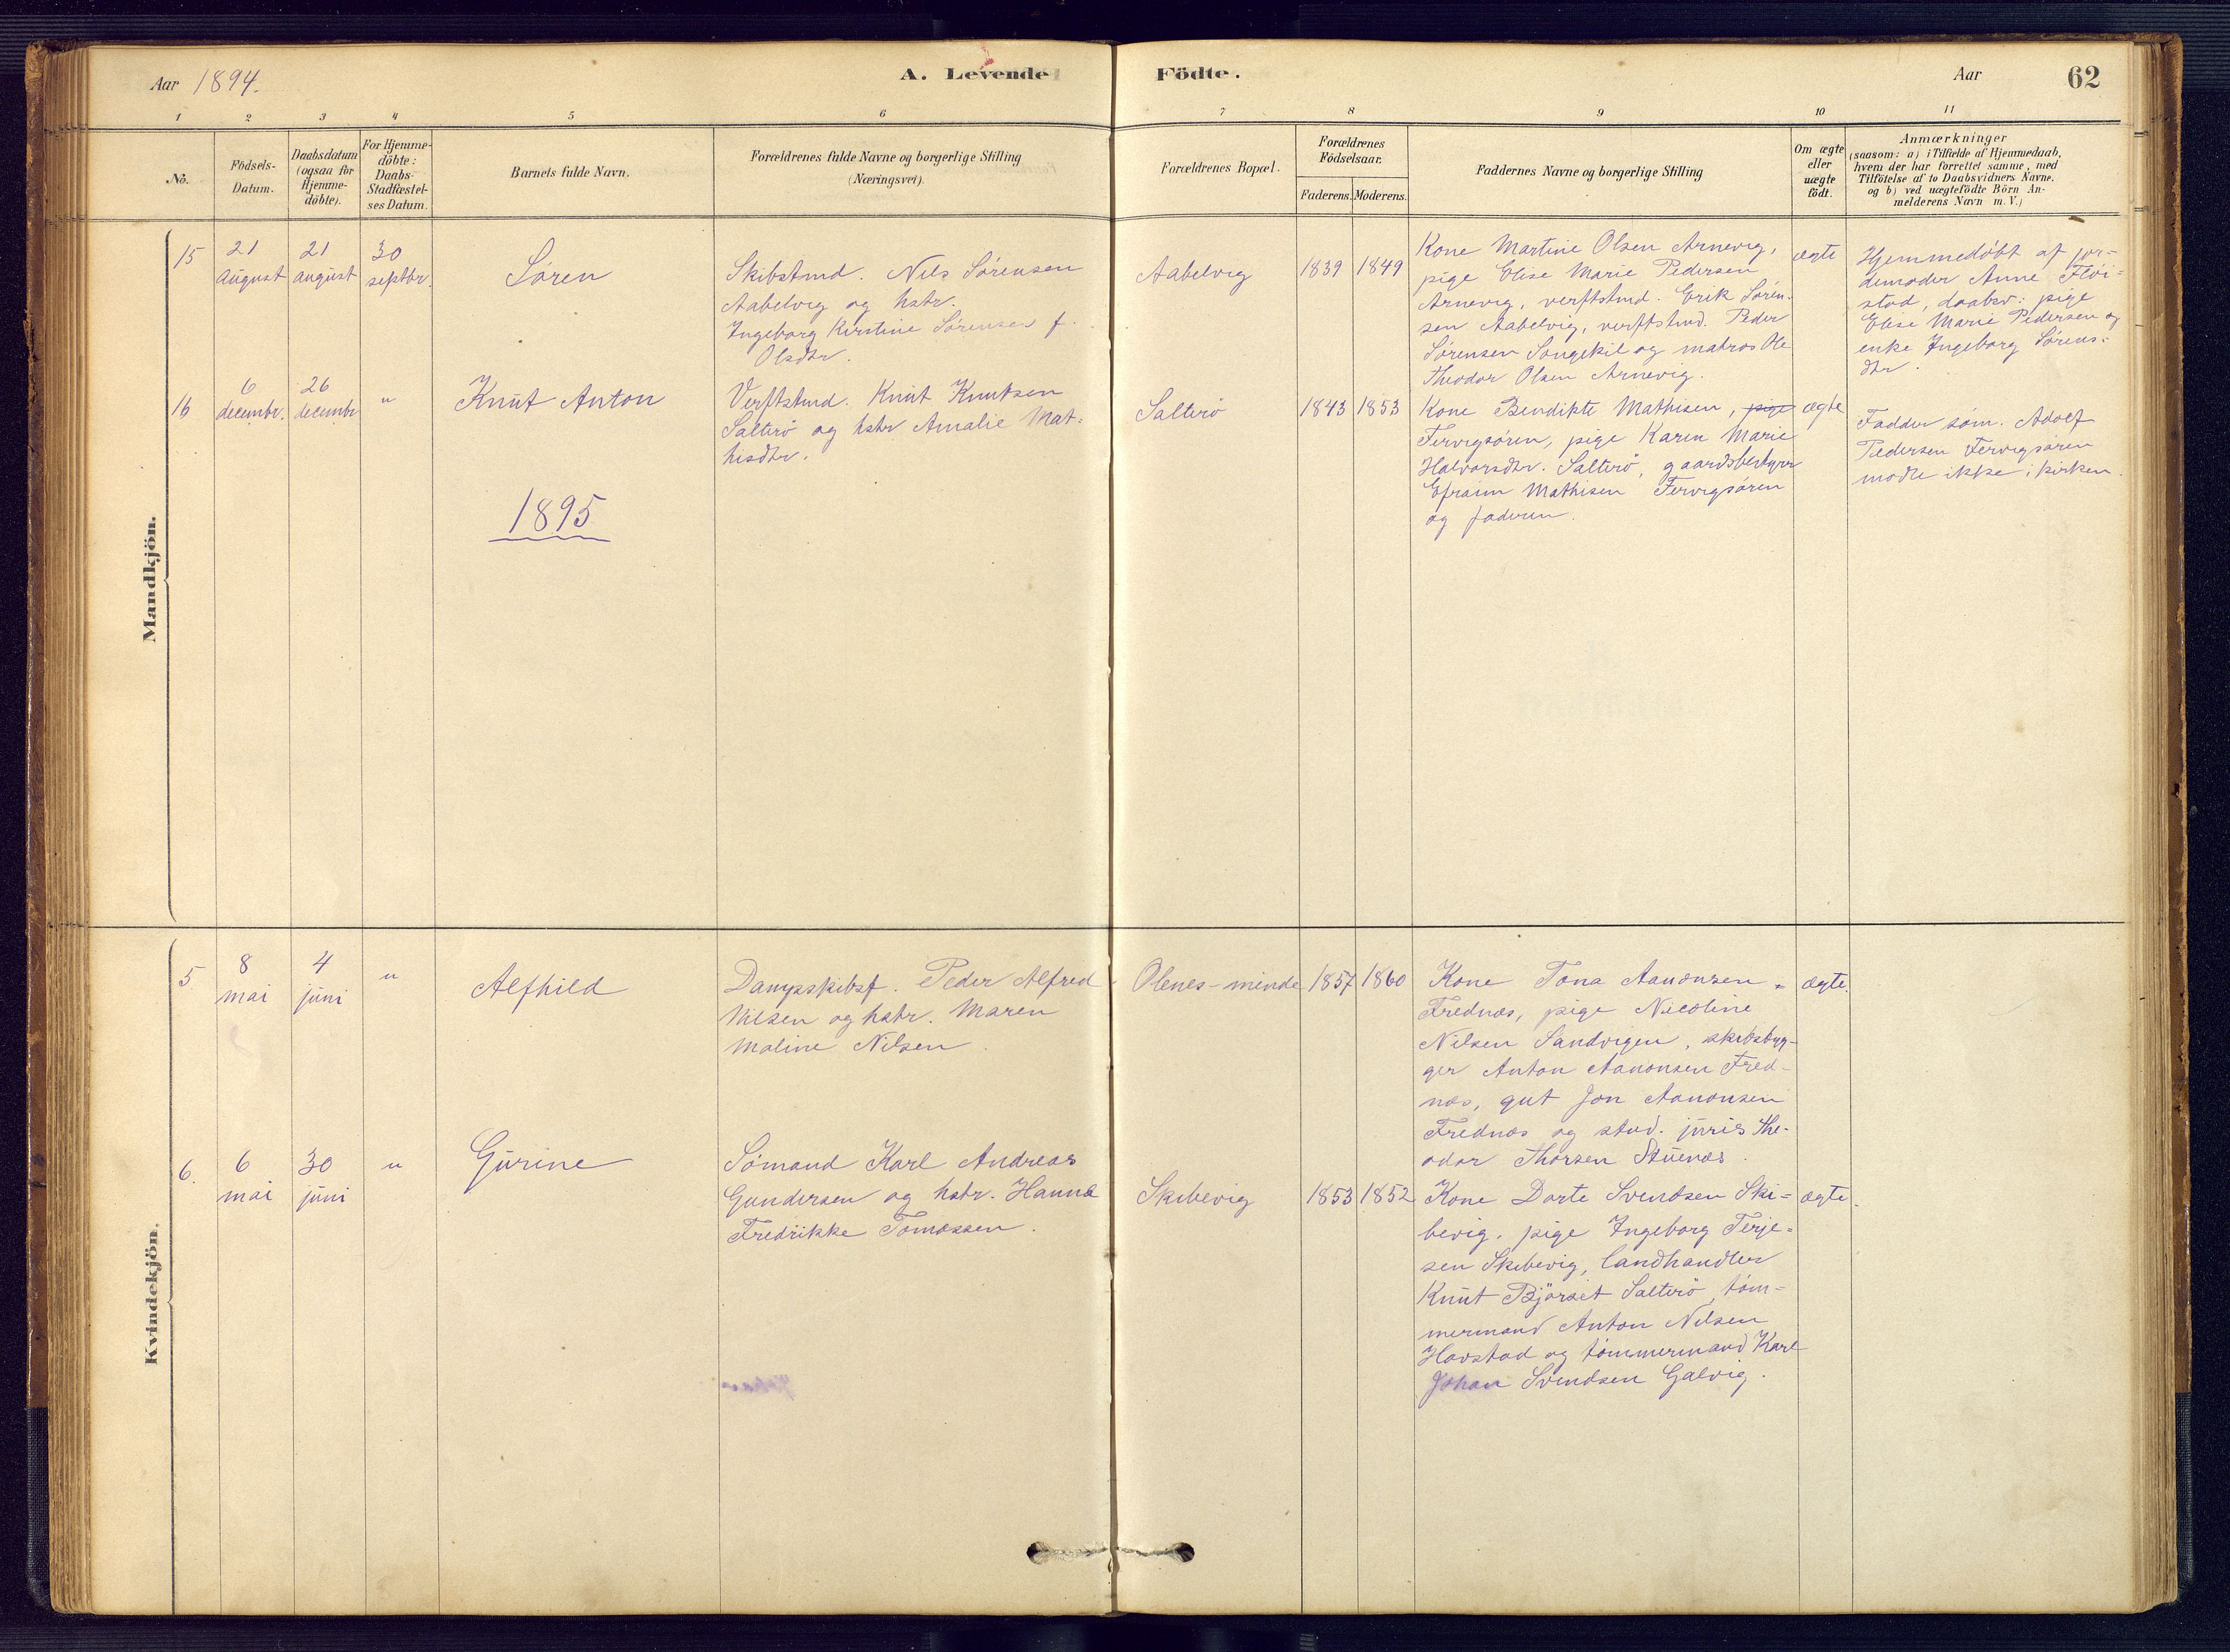 Aar 1894.
A. Levende
Födte.
Aar
62
1 2 3 4 5 6 7 8 9 10 11
No.
Födsels-
Datum.
Daabsdatum
(ogsaa for
Hjemme-
döbte).
For Hjemme-
döbte:
Daabs-
Stadfæstel-
ses Datum.
Barnets fulde Navn.
Forældrenes fulde Navne og borgerlige Stilling
(Næringsvei).
Forældrenes Bopæl.
Forældrenes
Födselsaar.
Faderens. Moderens.
Faddernes Navne og borgerlige Stilling
Om ægte
eller
uægte
födt.
Anmærkninger
(saasom: a) i Tilfælde af Hjemmedaab,
hvem der har forrettet samme, med
Tilföielse af to Daabsvidners Navne.
og b) ved uægtefödte Börn An-
melderens Navn m. V.)
Mandkjön.
15
21
august
21
august
30
septbr.
Sören
Skibstmd. Nils Sörensen
Aabelvig og hstr.
Ingeborg Kirstine Sörensen f.
Olsdtr.
Aabelvig
1839 1849
Kone Martine Olsen Arnevig,
pige Elise Marie Pedersen
Arnevig, verftstmd. Erik Sören-
sen Aabelvig, verftstmd. Peder
Sörensen Songekil og matros Ole
Theodor Olsen Arnevig.
ægte
Hjemmedöbt af jor-
demoder Anne Flöi-
stad, daabsv: pige
Elise Marie Pedersen og
enke Ingeborg Sörens-
dtr.
16
6
decembr.
26
decembr
"
Knut Anton
Verftstmd. Knut Knutsen
Salterö og hstr Amalie Mat-
hisdtr.
Salterö
1843 1853
Kone Bendikte Mathisen, pige
Fervigsören, pige Karen Marie
Halvorsdtr. Salterö, gaardsbestyrer
Efraim Mathisen Fervigsören
og faderen.
ægte
Fadder söm. Adolf
Pedersen Fervigsören
mödte ikke i kirken.
1895
Kvindekjön.
5
8
mai
4
juni
"
Alfhild
Dampskibsf. Peder Alfred
Nilsen og hstr. Maren
Maline Nilsen.
Olenes-minde
1857 1860
Kone Tona Aanonsen
Frednæs, pige Nicoline
Nilsen Sandvigen, skibsbyg-
ger Anton Aanonsen Fred-
næs, gut Jon Aanonsen
Frednæs og stud. juris The-
odor Thorsen Stuenæs.
ægte.
6.
6
mai
30
juni
"
Gurine
Sömand Karl Andreas
Gundersen og hstr. Hanna
Fredrikke Tomassen.
Skibevig
1853 1852
Kone Dorte Svendsen Ski-
bevig, pige Ingeborg Terje-
sen Skibevig, landhandler
Knut Björset Salterö, töm-
mermand Anton Nilsen
Havstad og tömmermand Karl
Johan Svendsen Galvig.
ægte.